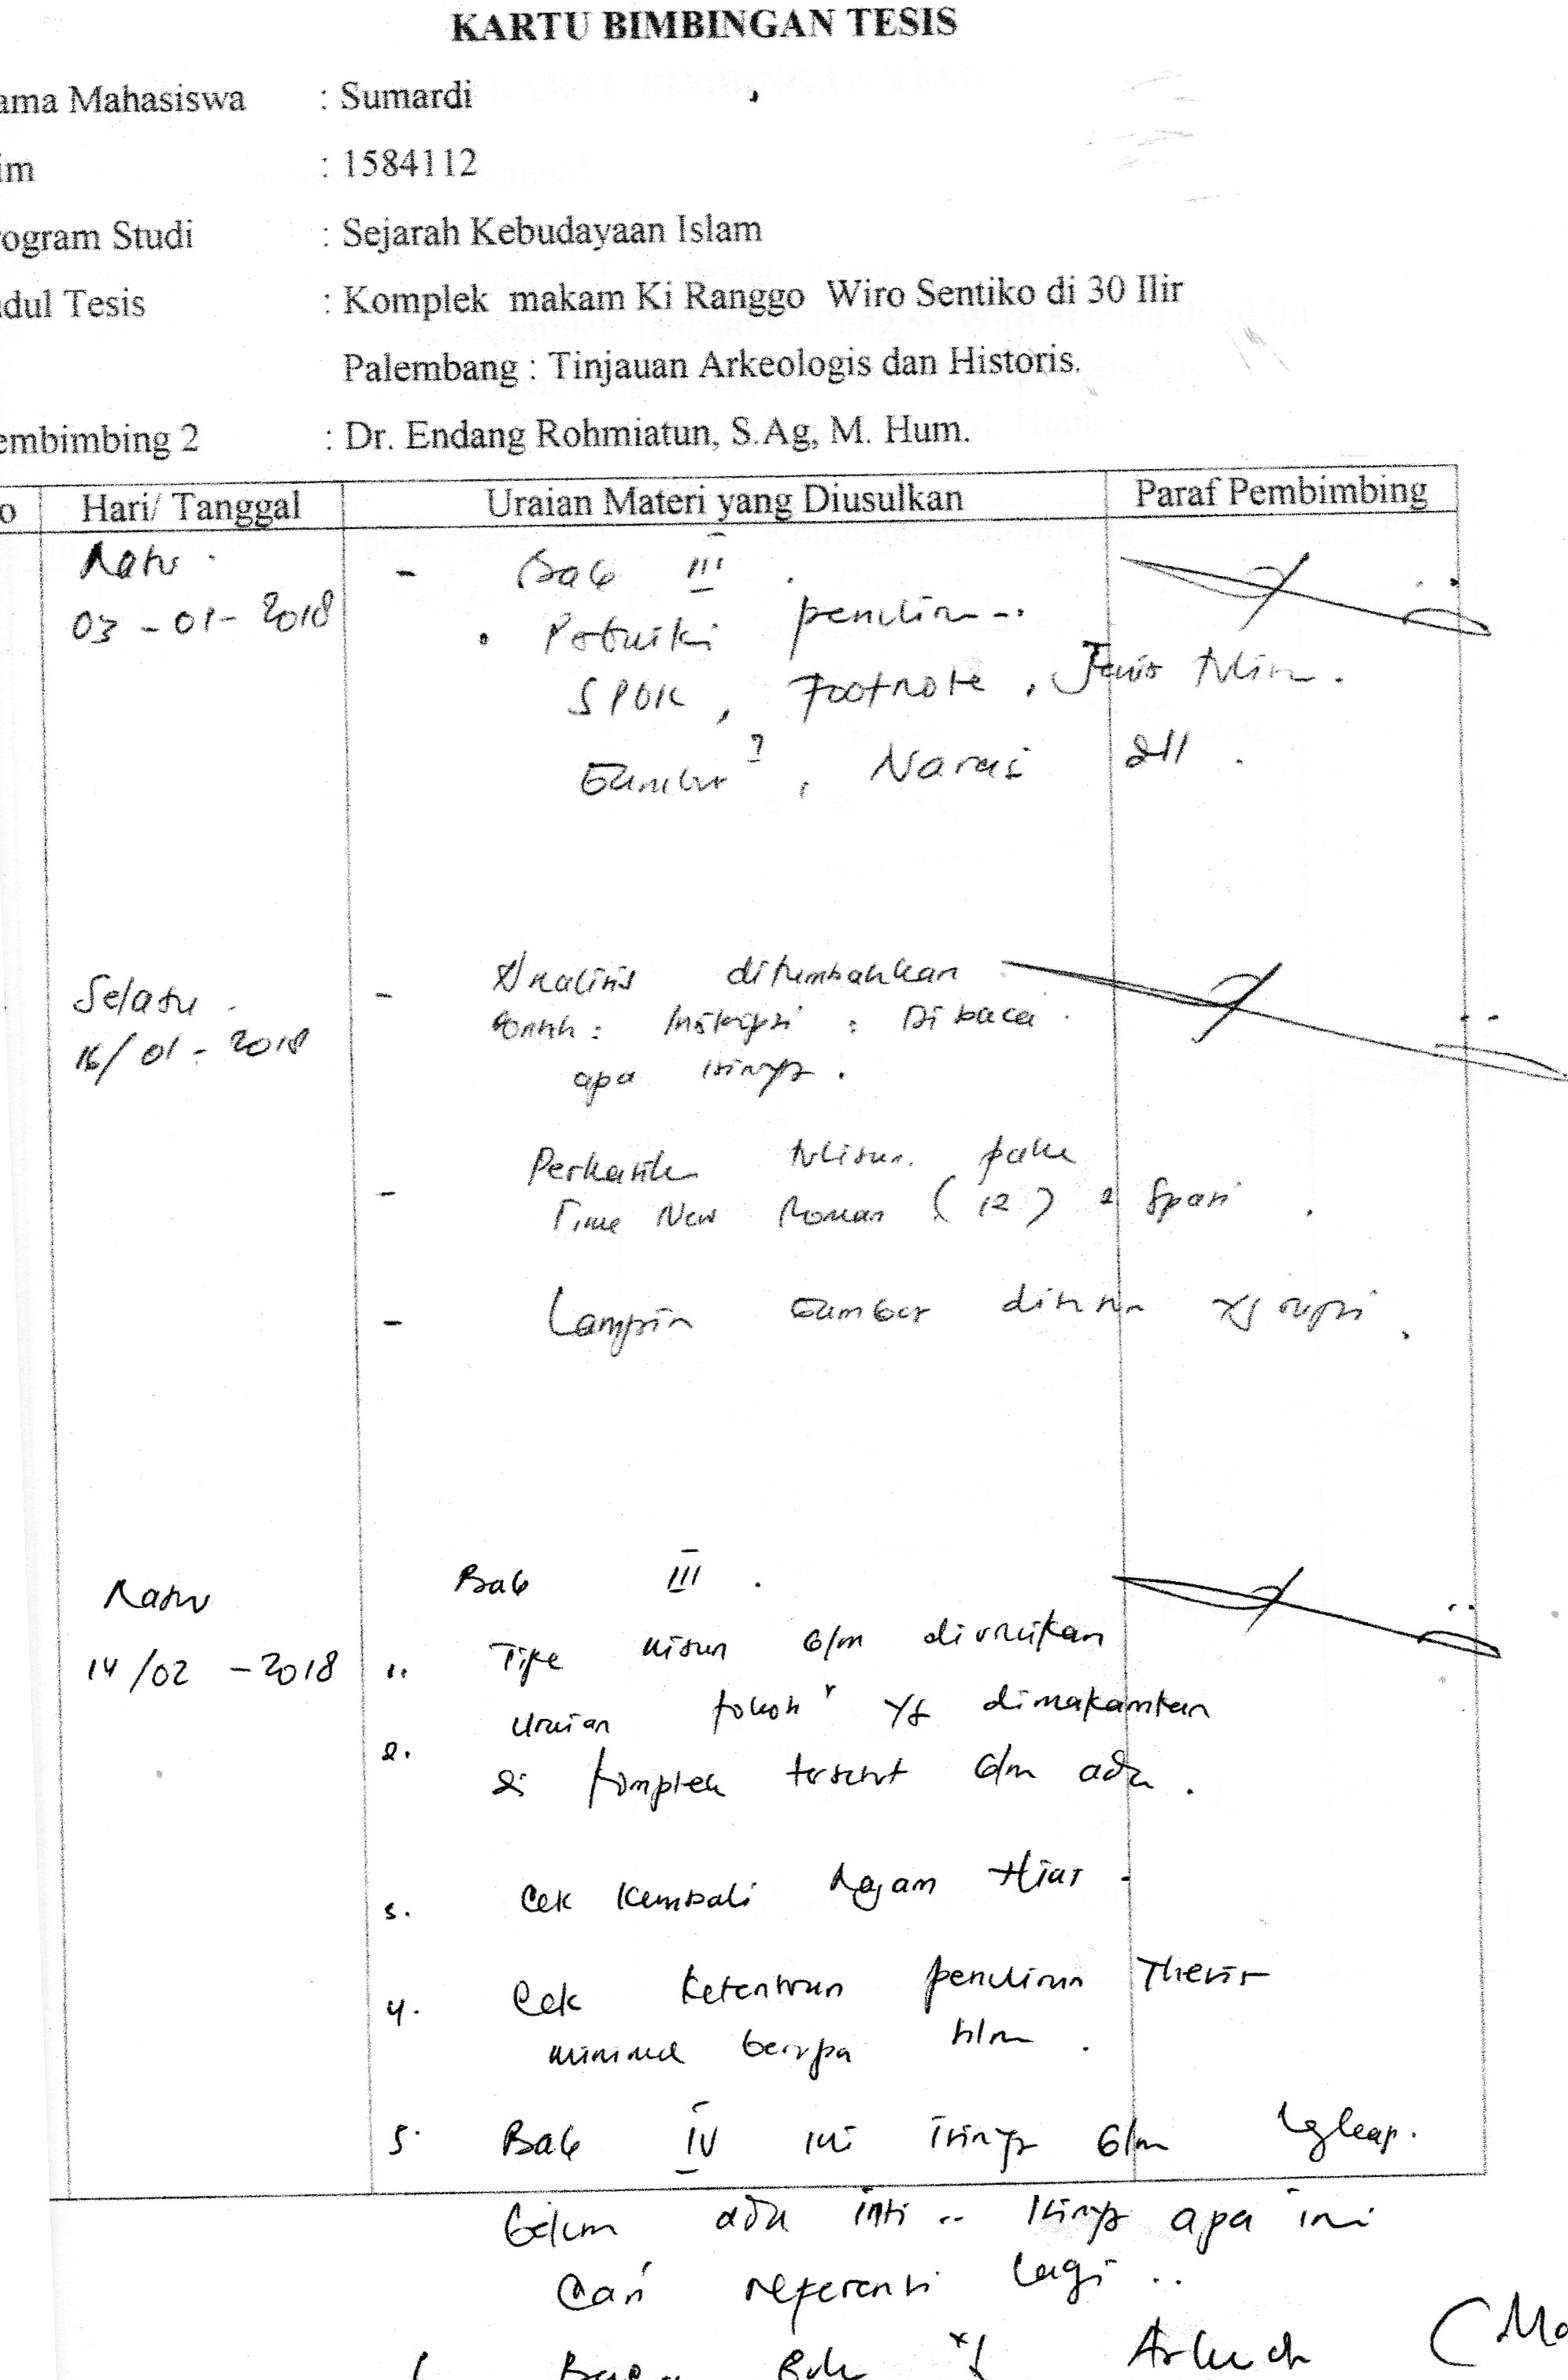 KARTU BIMBINGAN TESIS
ama Mahasiswa : Sumardi
im : 1584112
rogram Studi : Sejarah Kebudayaan Islam
dul Tesis : Komplek makam Ki Ranggo Wiro Sentiko di 30 Ilir
Palembang : Tinjauan Arkeologis dan Historis.
embimbing 2 : Dr. Endang Rohmiatun, S.Ag, M. Hum.
o Hari/ Tanggal Uraian Materi yang Diusulkan Paraf Pembimbing
Rabu - Bab III .
03 - 01 - 2018
SPOK, Footnote, Jenis
? , Narasi dll .
Selasa - Analisis ditambahkan
16/ 01 - 2018 : Inskripsi : Dibaca
apa isinya .
- tulisan pake
Time New Roman ( 12 ) 2 Spasi .
- gambar
Rabu Bab III .
14/02 - 2018 1. Tipe nisan blm diuraikan
2. Uraian tokoh² yg dimakamkan
di komplek tersebut blm ada .
3. Cek Kembali Ragam Hias
4. Cek Ketentuan penulisan Thesis
minimal berapa hlm .
5. Bab IV ini isinya blm lengkap.
belum ada inti .. Isinya apa ini
Cari referensi lagi ..
(Ma